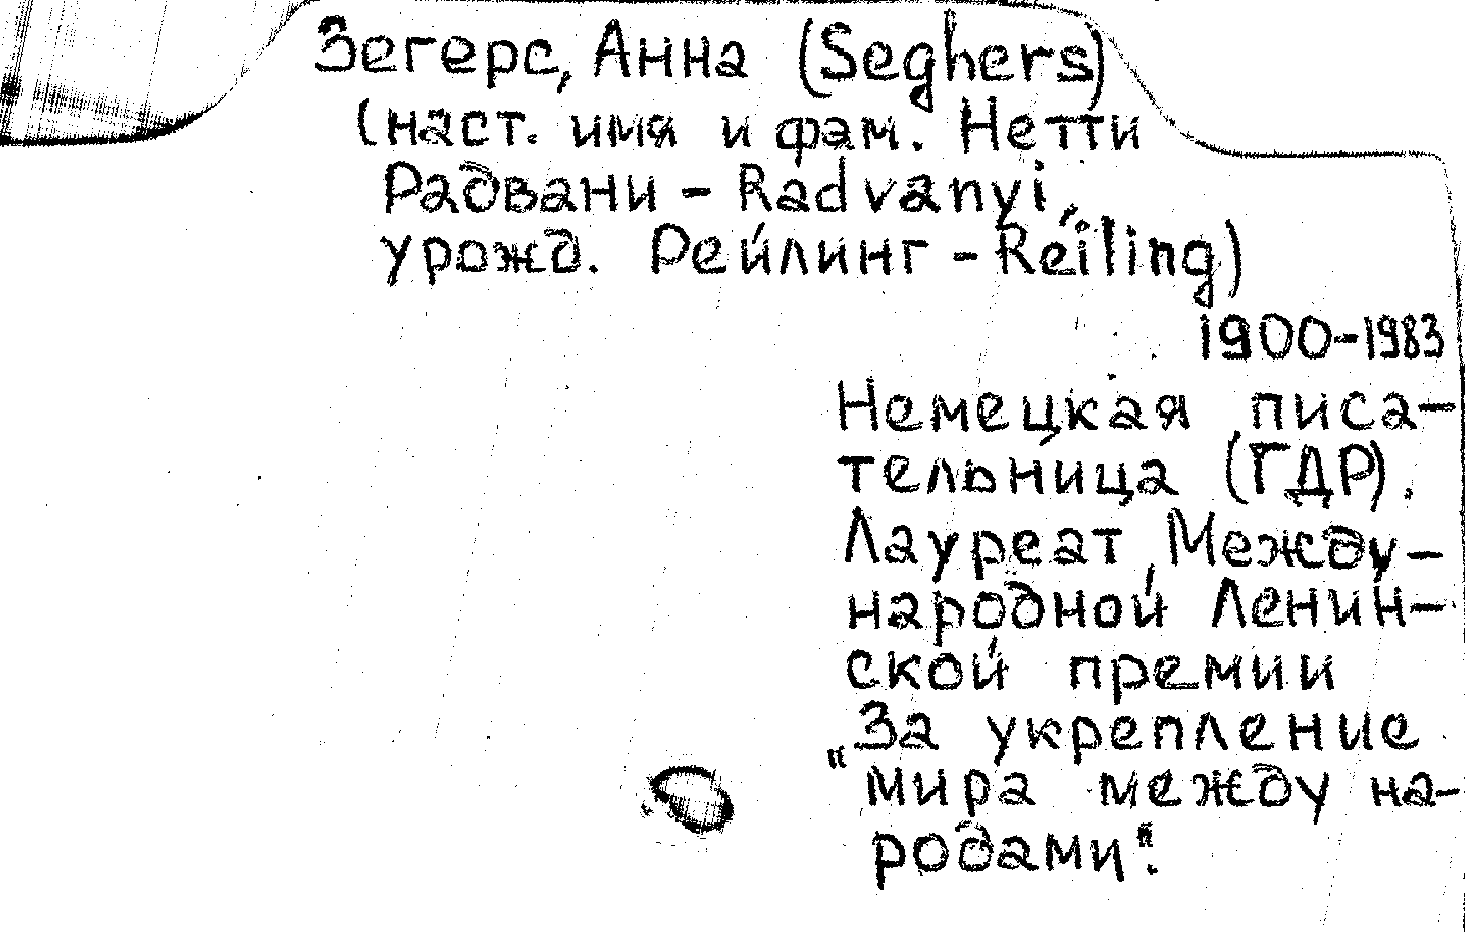 Зегерс, Анна (Seghers)
(наст. имя и фам. Нетти
Радвани - Radvanyi,
урожд. Рейлинг - Reiling)
1900-1983
Немецкая писа-
тельница (ГДР).
Лауреат Между-
народной Ленин-
ской премии
"За укрепление
мира между на-
родами".